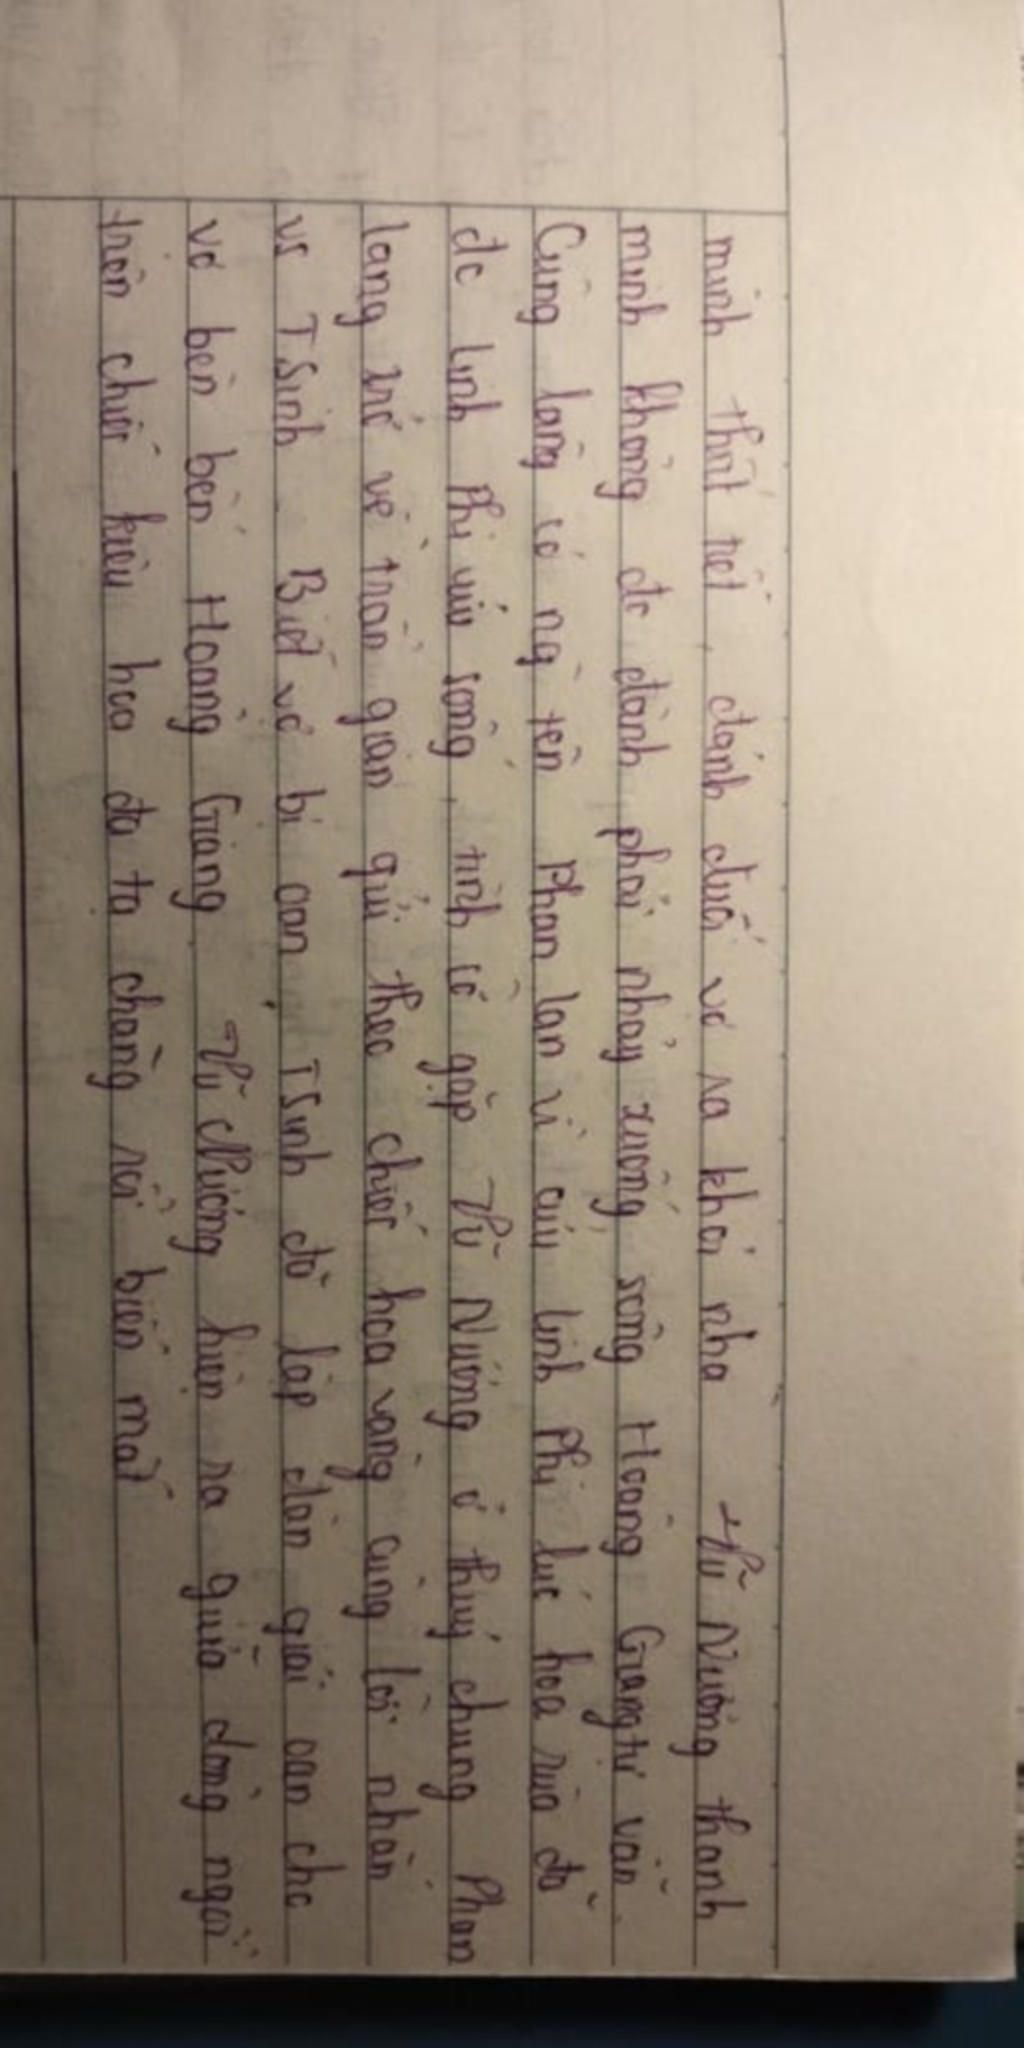 mình thất tiết, đánh đuổi vợ ra khỏi nhà. Vũ Nương thanh
minh không đc đành phải nhảy xuống sông Hoàng Giang tự vẫn.
Cùng làng có ng tên Phan Lan vì cứu Linh Phi lúc hoá rùa đã
đc Linh Phi cứu sống, tình cờ gặp Vũ Nương ở thuỷ chung Phan
lang trở về trần gian gửi theo chiếc hoa vàng cùng lời nhắn
vs TSinh. Biết vợ bị oan, TSinh đã lập đàn giải oan cho
vợ bên bến Hoàng Giang. Vũ Nương hiện ra giữa dòng ngồi
trên chiếc kiệu hoa đa tạ chàng rồi biến mất